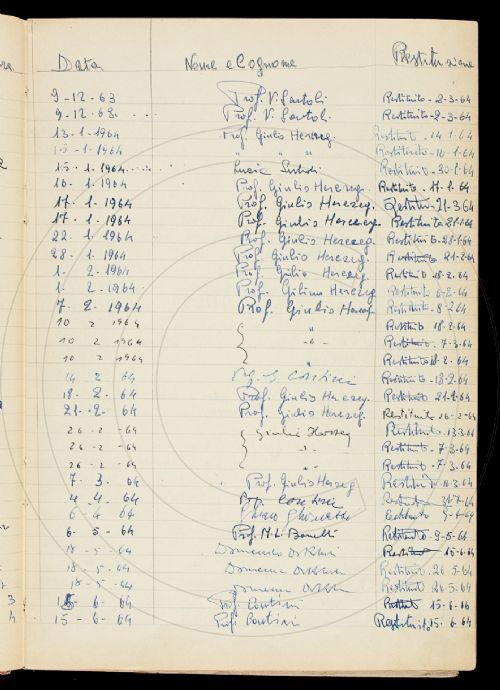 Data Nome e Cognome Restituzione
9-12-63 Prof. V. Santoli Restituito - 2-3-64
9-12-63 Prof. V. Santoli Restituito - 2-3-64
13-1-1964 Prof. Giulio Herczeg Restituito 14-1-64
15-1-1964 " " Restituito - 16-1-64
15-1-1964 Lucia Restituito - 30-1-64
16-1-1964 Prof. Giulio Herczeg. Restituito - 17-1-64
17-1-1964 Prof. Giulio Herczeg. Restituito 21-3-64
17-1-1964 Prof. Giulio Herczeg. Restituito 21-1-64
22-1-1964 Prof. Giulio Herczeg. Restituito - 28-1-64
28-1-1964 Prof. Giulio Herczeg Restituito - 21-2-64
1-2-1964 Prof. Giulio Herczeg Restituito - 18-2-64
1-2-1964 Prof. Giulio Herczeg Restituito - 6-2-64
7-2-1964 Prof. Giulio Herczeg Restituito - 8-2-64
10 2 1964 " Restituito 18-2-64
10 2 1964 " Restituito - 7-3-64
10 2 1964 " Restituito 18-2-64
14 2 64 Prof. G. Contini Restituito - 18-2-64
18-2-64 Prof. Giulio Herczeg Restituito - 21-2-64
21-2-64 Prof. Giulio Herczeg. Restituito 26-2-64
26-2-64 Giulio Herczeg Restituito - 13-3-64
26-2-64 " Restituito - 7-3-64
26-2-64 " Restituito - 7-3-64
7-3-64 Prof. Giulio Herczeg Restituito - 10-3-64
4-4-64 Prof. Contini Restituito
6-4-64 Restituito 9-4-64
6-5-64 Prof. M. L. Restituito - 9-5-64
18-5-64 Domenico Restituito - 15-6-64
18-5-64 Domenico Restituito - 26-5-64
18-5-64 Domenico Restituito - 26-5-64
15-6-64 Prof. Contini Restituito 15-6-
15-6-64 Prof. Contini Restituito 15-6-64